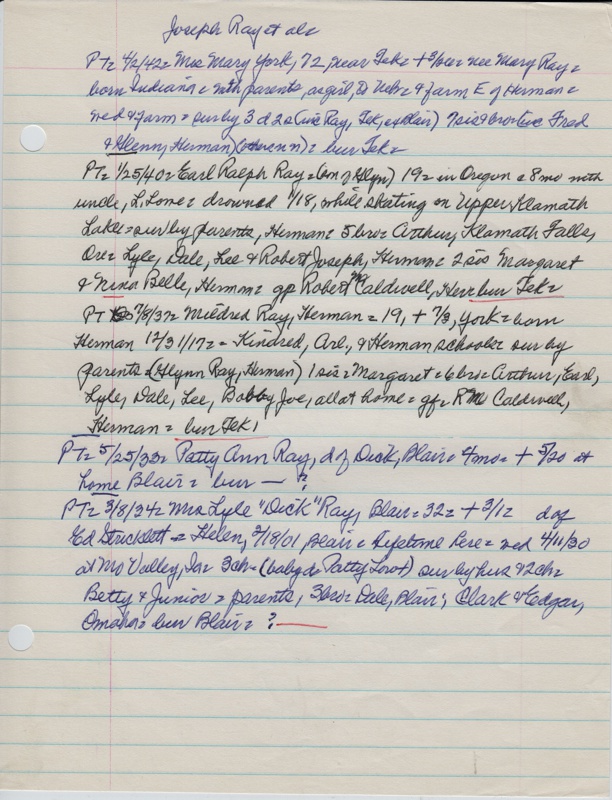 Joseph Ray et als
PT= 4/2/42= Mrs Mary York, 72, near Tek= + 3/ nee Mary Ray=
born Indiana = with parents, as girl, to Nebr= & farm E of Herman =
wed & farm = sur by 3 d 2 s Ray, Tek, Blair) Fred
& Glenn, Herman) = bur Tek=
PT= 1/25/40= Earl Ralph Ray = (son of Glyn) 19= in Oregon = 8 mo with
uncle, L. Lowe = drowned 1/18, while skating on Upper Klamath
Lake = sur by parents, Herman = 5 bro = Arthur, Klamath Falls,
Ore = Lyle, Dale, Lee & Robert Joseph, Herman = 2 sis Margaret
& Nina Belle, Herman = gp Robert McCaldwell, Her= bur Tek=
PT 7/8/37= Mildred Ray, Herman = 19, + 7/3, York = born
Herman 12/31/17= = Kindred, Ark., & Herman schools= sur by
parents = (Glynn Ray, Herman) 1 sis = Margaret = 6 bro = Arthur, Earl,
Lyle, Dale, Lee, Bobby Joe, all at home = gf = R Mc Caldwell,
Herman = bur Tek,
PT= 5/25/33= Patty Ann Ray, d of Dick, Blair = 4 mo = + 5/20 at
home Blair = bur — ?
PT= 3/8/34= Mrs Lyle "Dick" Ray, Blair = 32= + 3/12 d of
Ed Stricklett = Helen, 2/18/01 Blair = lifetime here = wed 4/11/30
at Mo Valley, Ia= 3 ch= (baby d= Patty ) sur by hus & 2 ch=
Betty & Junior = parents, 3 bro= Dale, Blair; Clark & Edgar,
Omaha = bur Blair = ? —